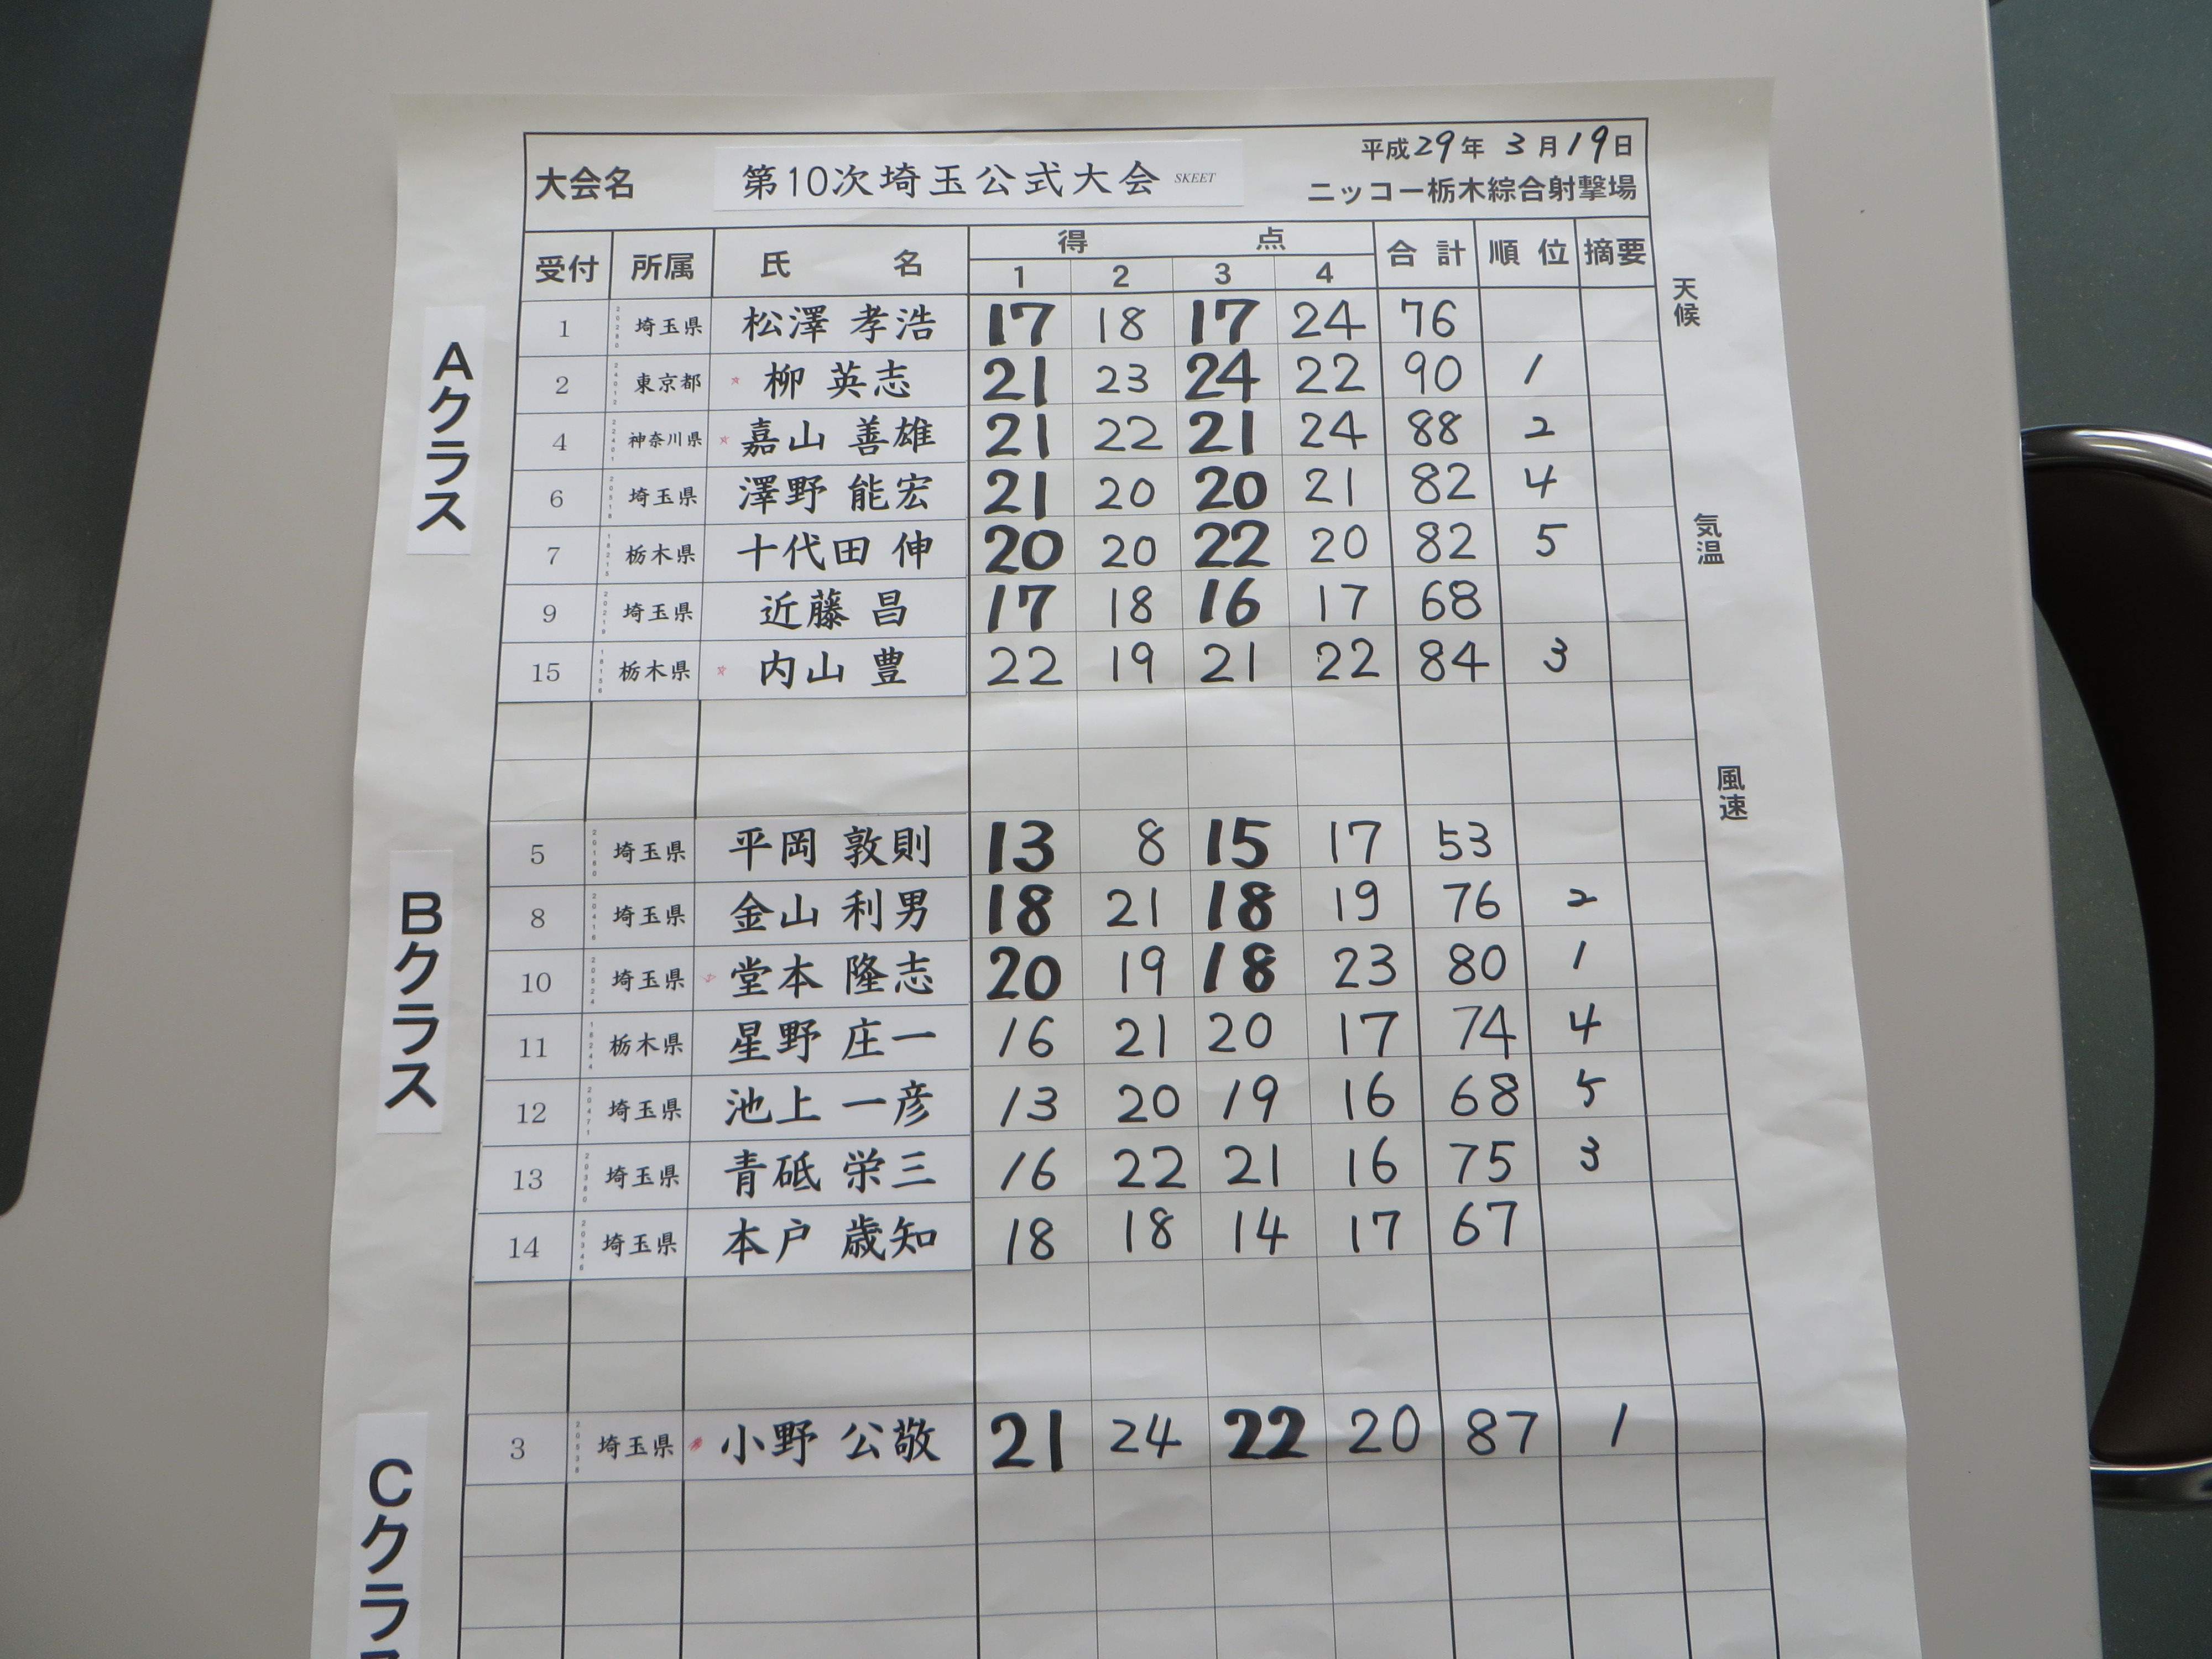 平成29年 3月19日
大会名 第10次埼玉公式大会 SKEET ニッコー栃木綜合射撃場
受付 所属 氏名 得点 合計 順位 摘要
1 2 3 4
天候
気温
風速
Aクラス
1 埼玉県 松澤 孝浩 17 18 17 24 76
2 東京都 ☆ 柳 英志 21 23 24 22 90 1
4 神奈川県 ☆ 嘉山 善雄 21 22 21 24 88 2
6 埼玉県 澤野 能宏 21 20 20 21 82 4
7 栃木県 十代田 伸 20 20 22 20 82 5
9 埼玉県 近藤 昌 17 18 16 17 68
15 栃木県 ☆ 内山 豊 22 19 21 22 84 3
Bクラス
5 埼玉県 平岡 敦則 13 8 15 17 53
8 埼玉県 金山 利男 18 21 18 19 76 2
10 埼玉県 堂本 隆志 20 19 18 23 80 1
11 栃木県 星野 庄一 16 21 20 17 74 4
12 埼玉県 池上 一彦 13 20 19 16 68 5
13 埼玉県 青砥 栄三 16 22 21 16 75 3
14 埼玉県 本戸 歳知 18 18 14 17 67
Cクラス
3 埼玉県 小野 公敬 21 24 22 20 87 1